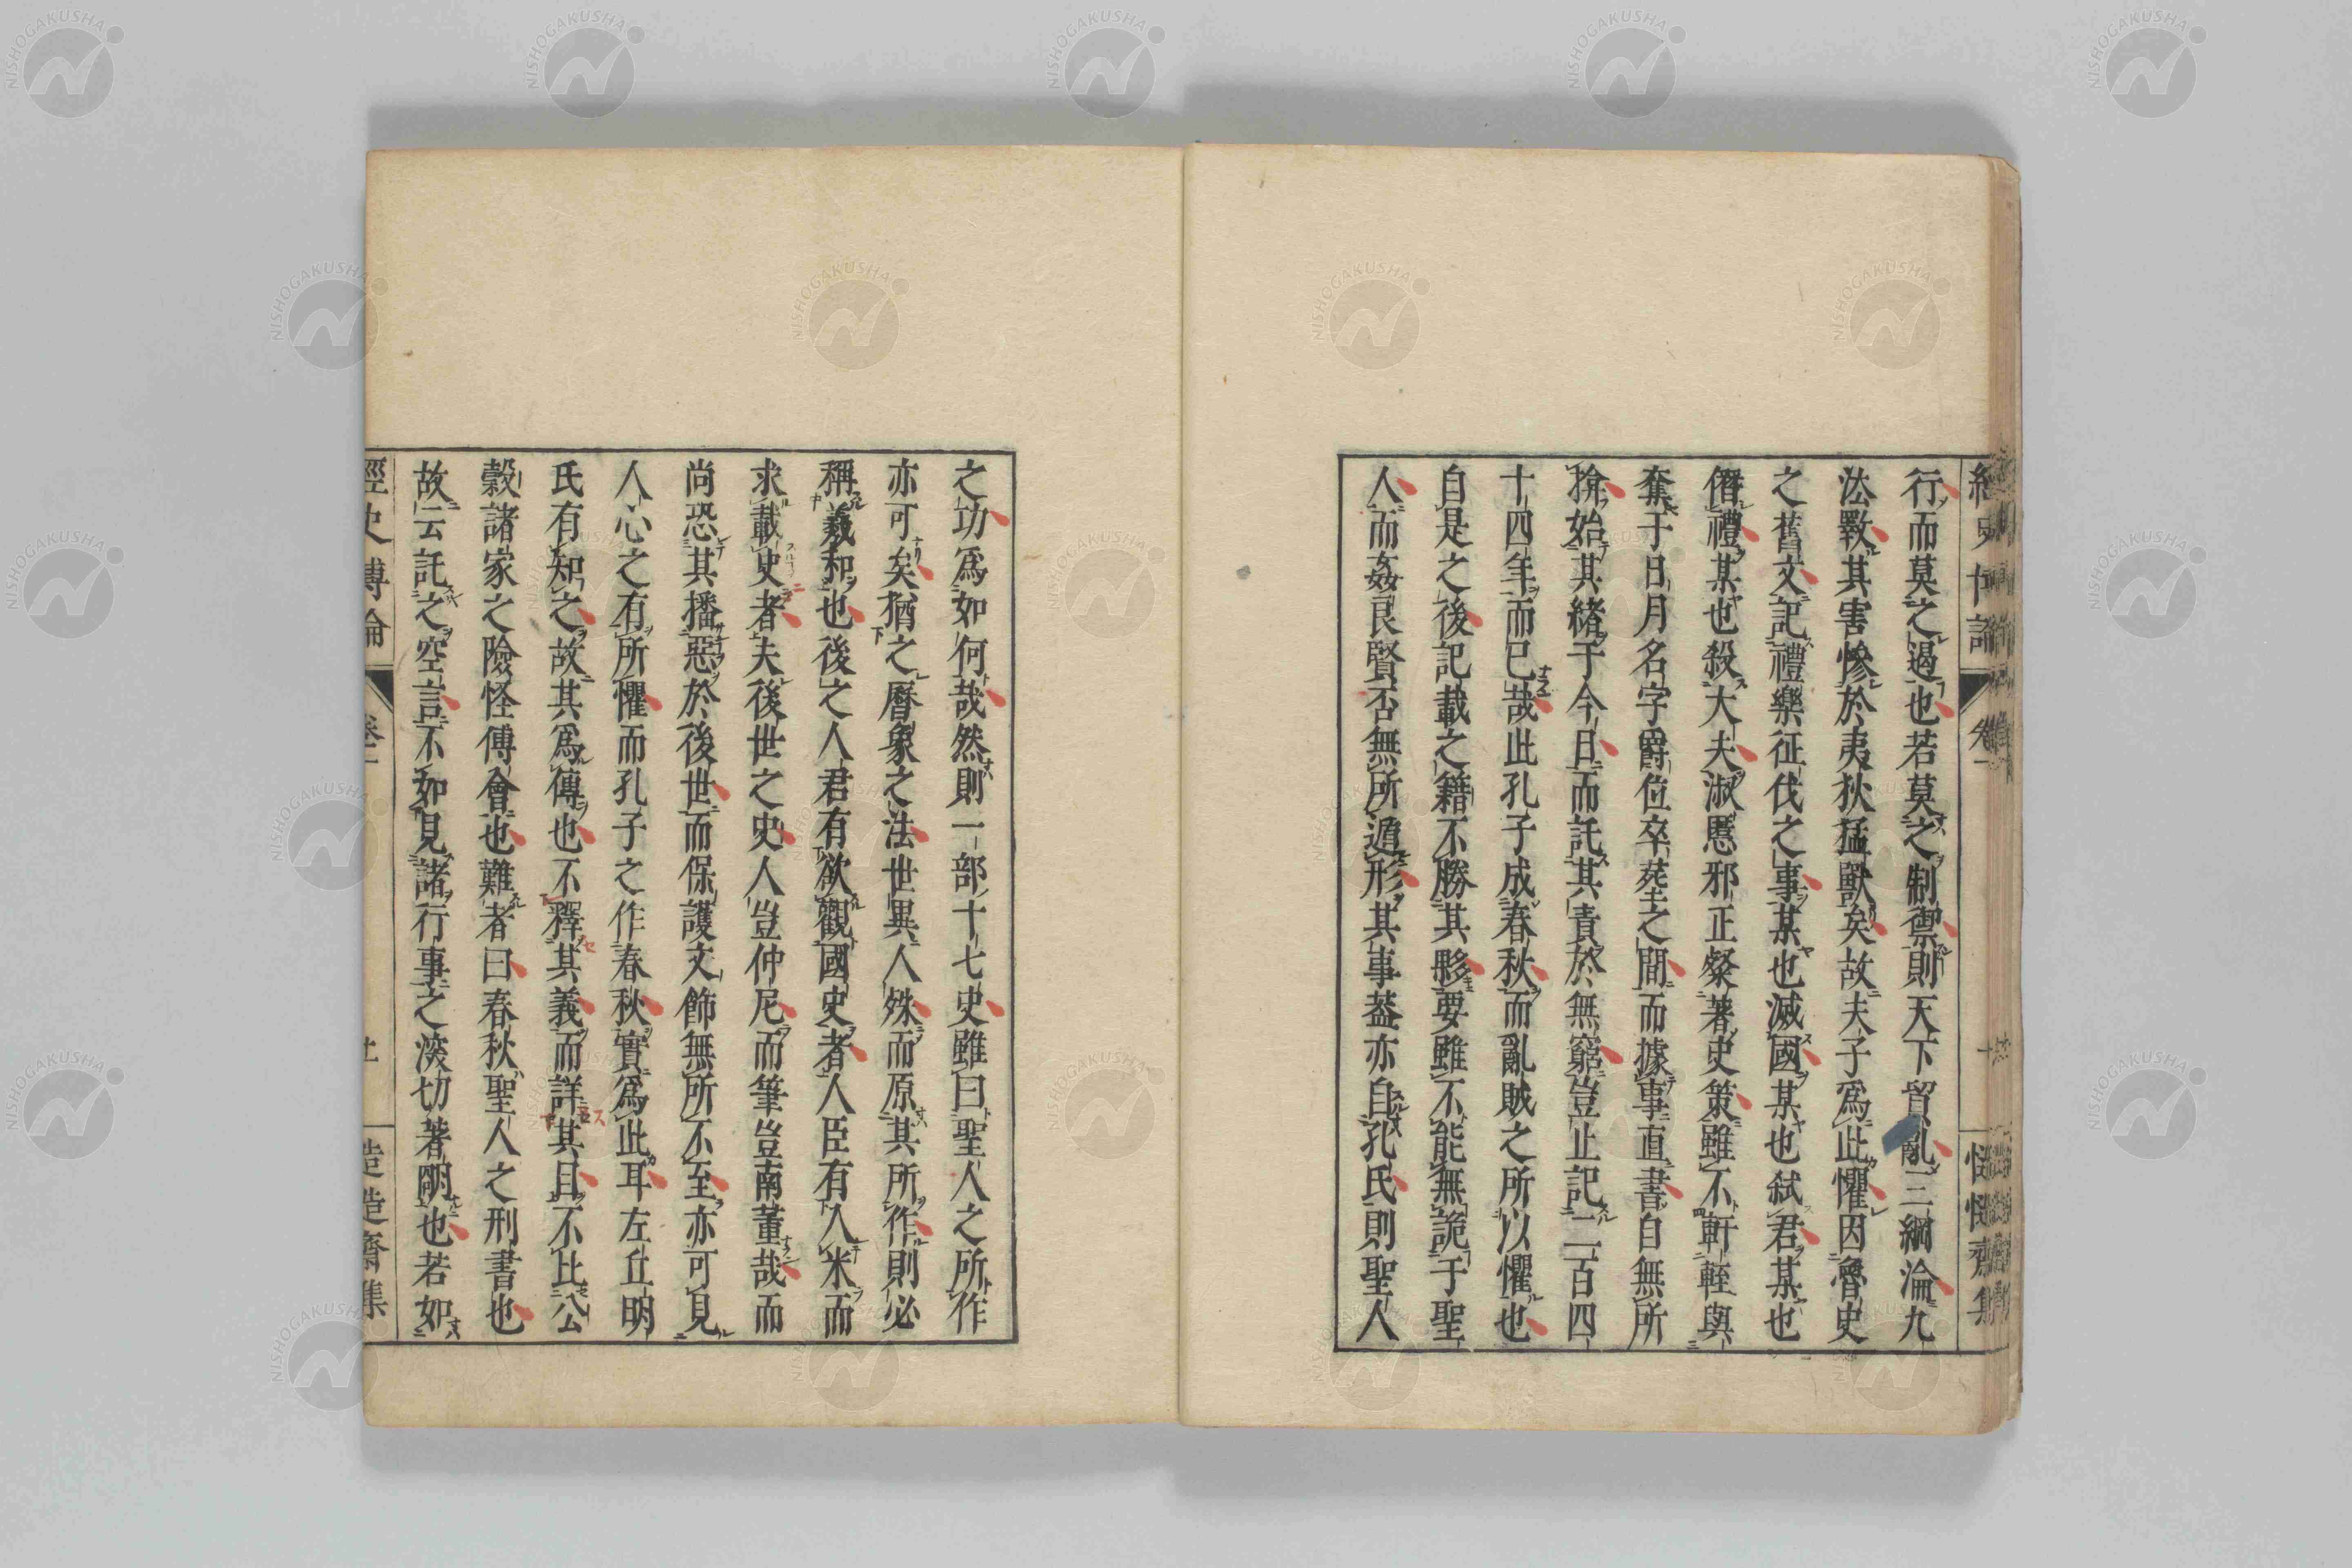 行而莫之遏也若莫之制禦則天下貿亂三綱淪九
法斁其害慘於夷狄猛獸矣故夫子爲此懼因魯史
之舊文記禮樂征伐之事某也滅國某也弑君某也
僭禮某也殺大夫淑慝邪正粲著史策雖不軒輊與
奪于日月名字爵位卒薨之間而據事直書自無所
揜始其緒于今日而託其責於無窮豈止記二百四
十四年而已哉此孔子成春秋而亂賊之所以懼也
自是之後記載之籍不勝其夥要雖不能無詭于聖
人而姦良賢否無所遁形其事葢亦自孔氏則聖人
之功爲如何哉然則一部十七史雖曰聖人之所作
亦可矣猶之曆象之法世異人殊而原其所作則必
稱羲和也後之人君有欲觀國史者人臣有入米而
求載史者夫後世之史人豈仲尼而筆豈南董哉而
尚恐其播惡於後世而保護文飾無所不至亦可見
人心之有所懼而孔子之作春秋實爲此耳左丘明
氏有知之故其爲傳也不釋其義而詳其目不比公
穀諸家之險怪傅會也難者曰春秋聖人之刑書也
故云託之空言不如見諸行事之深切著明也若如
經史博論
卷一
十一
慥慥齋集